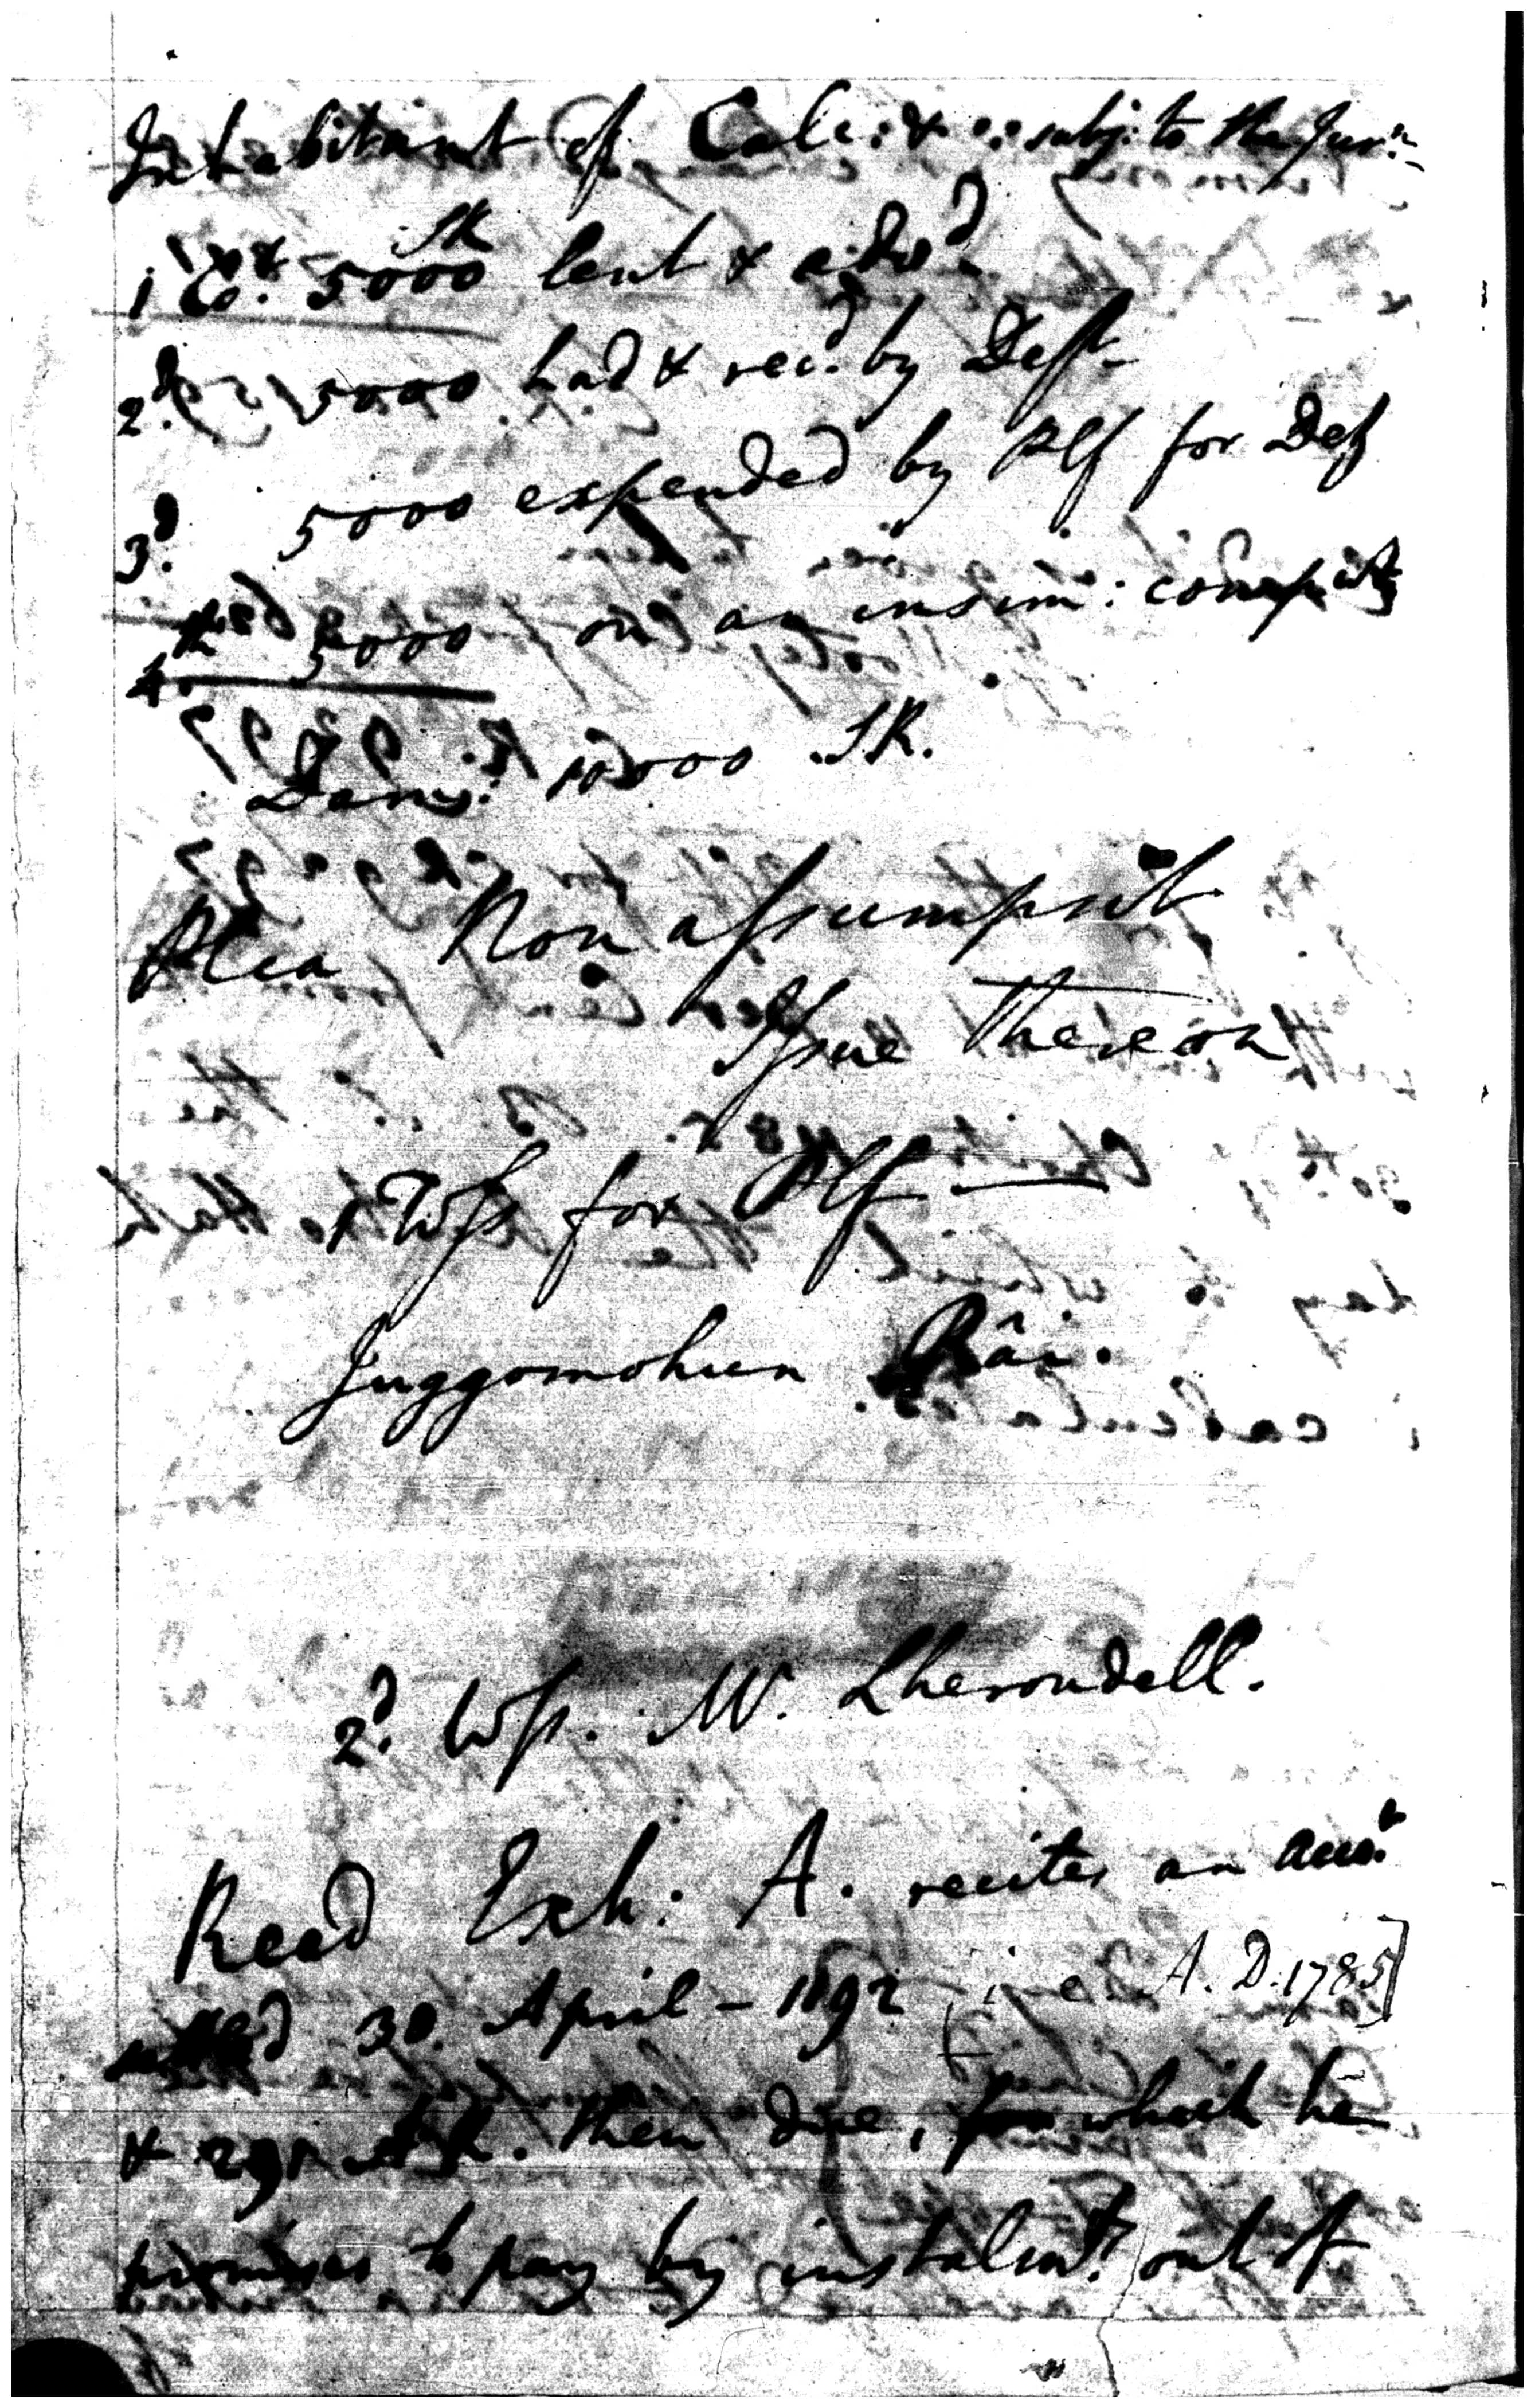 Inhabitant of Calc: & :: subj: to the Jur:n
1 Co:t 5000 SR lent & adv:d
2:d 5000 had & rec:d by Deft
3:d 5000 expended by Plf for Def
4:th 5000 on an insim: comput:
Dam: 10000 S.R.
Plea Non assumpsit
Issue thereon
1 Wss for Plf
Juggomohun Râi.
2:d Wss. M:r Lherondell.
Read Exh: A. recites an acco:t
settled 30. April - 1192 [i e. A.D. 1785]
& S.R. then due, for which he
promises to pay by instalm:ts out of